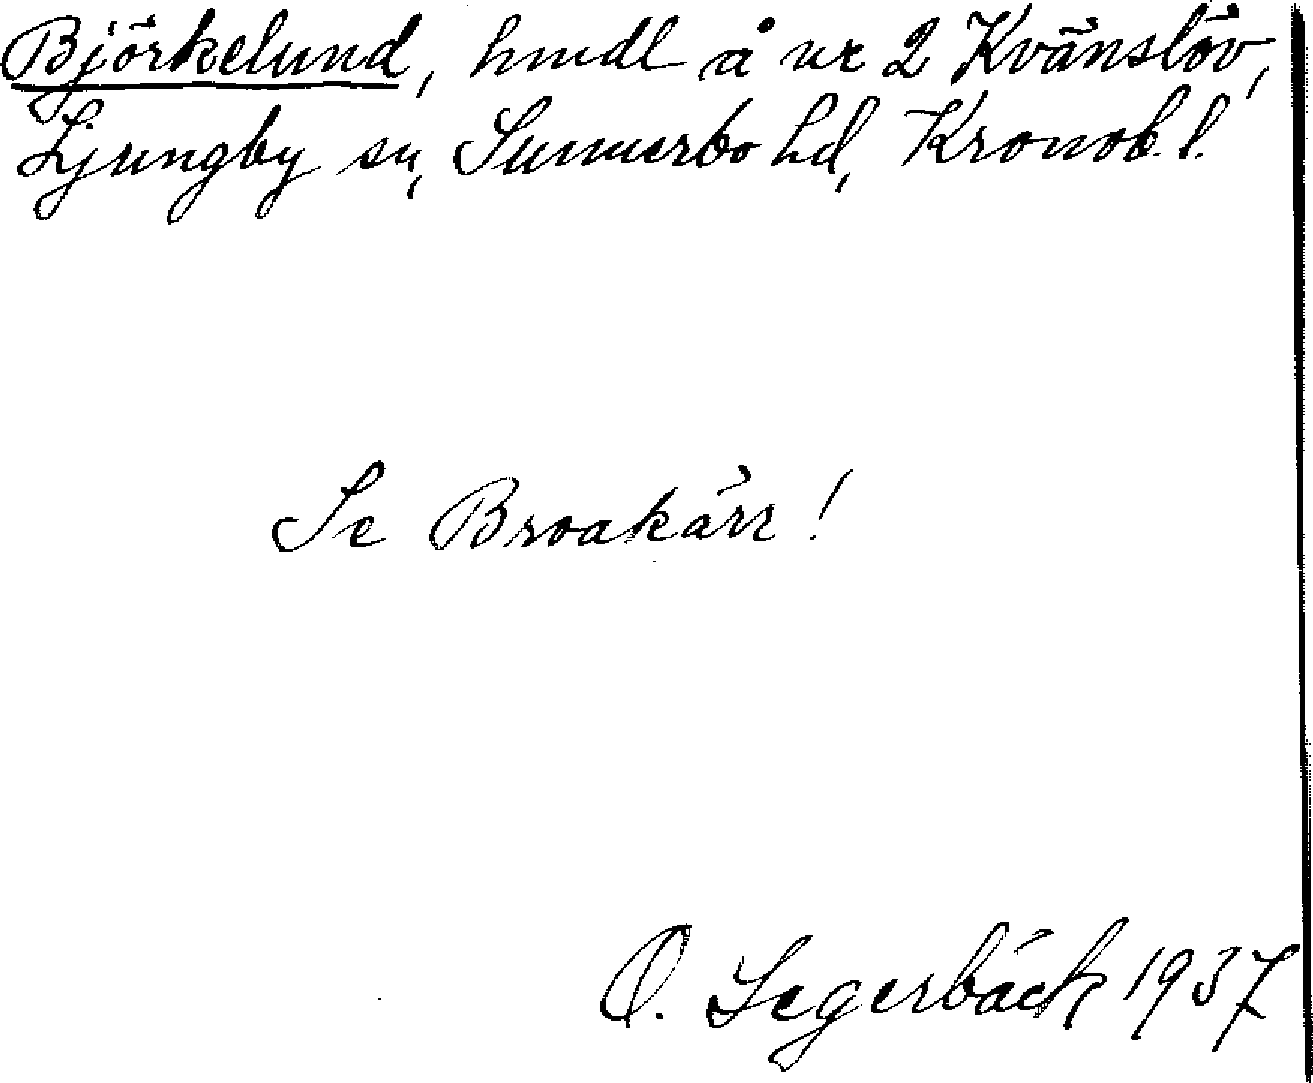 Björkelund, hmdl å nr 2 Kvänslöv,
Ljungby sn, Sunnerbo hd, Kronob. l.
Se Broakärr!
O. Segerbäck 1937